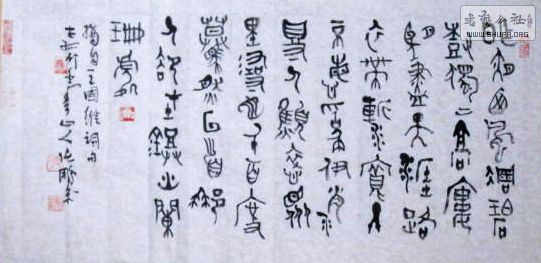 昨夜西風凋碧
樹獨上高樓
望盡天涯路
衣帶漸寬
不悔為伊消
得人憔悴眾
里尋他千百度
驀然回首那
人卻在燈火闌
珊處
摘自王國維詞句